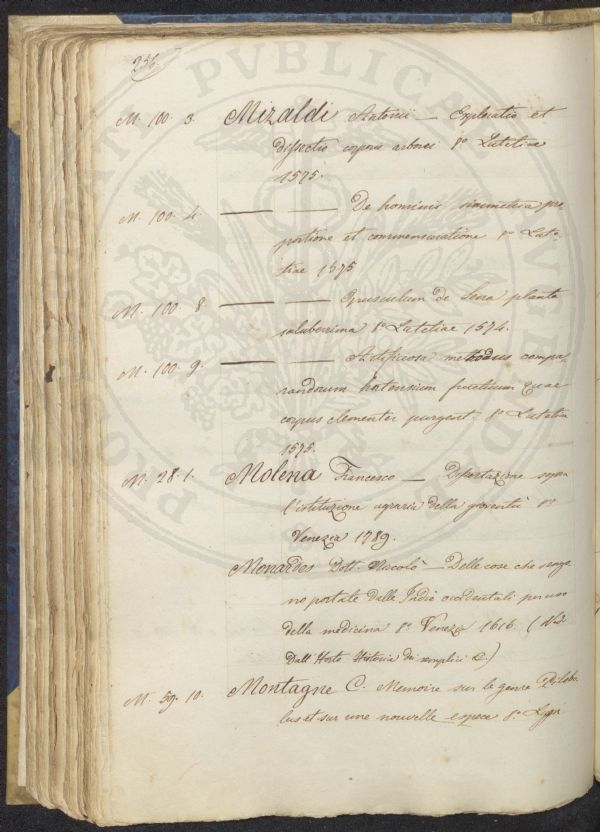 236.
M. 100. 3. Mizaldi Antonii — Exploratio et
dissectio corporis arborei 8º Lutetiae
1575.
M. 100. 4. —— —— De hominis simmetria pro
portione et commensuratione 8º Lute-
tiae 1575
M. 100. 8. —— —— Opusculum de Sena planta
saluberrima 8º Lutetiae 1574.
M. 100. 9. —— —— Artificiosa methodus compa
randorum hortensium fructuum quae
corpus clementer purgent 8º Lutetia
1575.
M. 28. 1. Molena Francesco — Disertazione sopra
l'istituzione agraria della gioventù 8º
Venezia 1789.
Monardes Dott. Niccolò — Delle cose che venge
no portate dalle Indie occidentali per uso
della medicina 8º Venez 1616. (
Dall'Horto Historia dei semplici &.)
M. 59. 10. Montagne C. Memoire sur le genre
lus et sur une nouvelle espece 8º
PVBLICAE